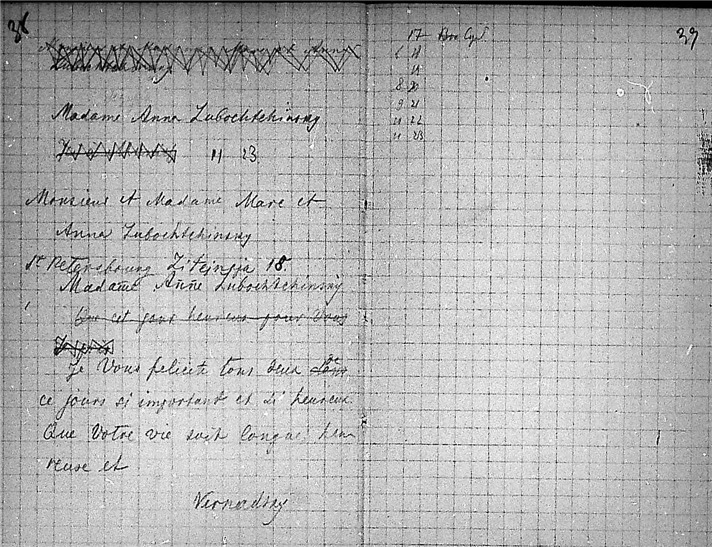 38
Madame Anna Lubochtchinsky
11 23
Monsieur et Madame Marc et
Anna Lubochtchinsky
St Petersbourg Litejnaja 18.
Madame Anne Lubochtchinsky
Que cet jour heureux pour Vous
Je Vous felicite tous deux De
ce jours si important et si heureux
Que Votre vie soit longue heu
reuse et
Vernadsky
39
17
18
19
8 20
9 21
11 22
11 23